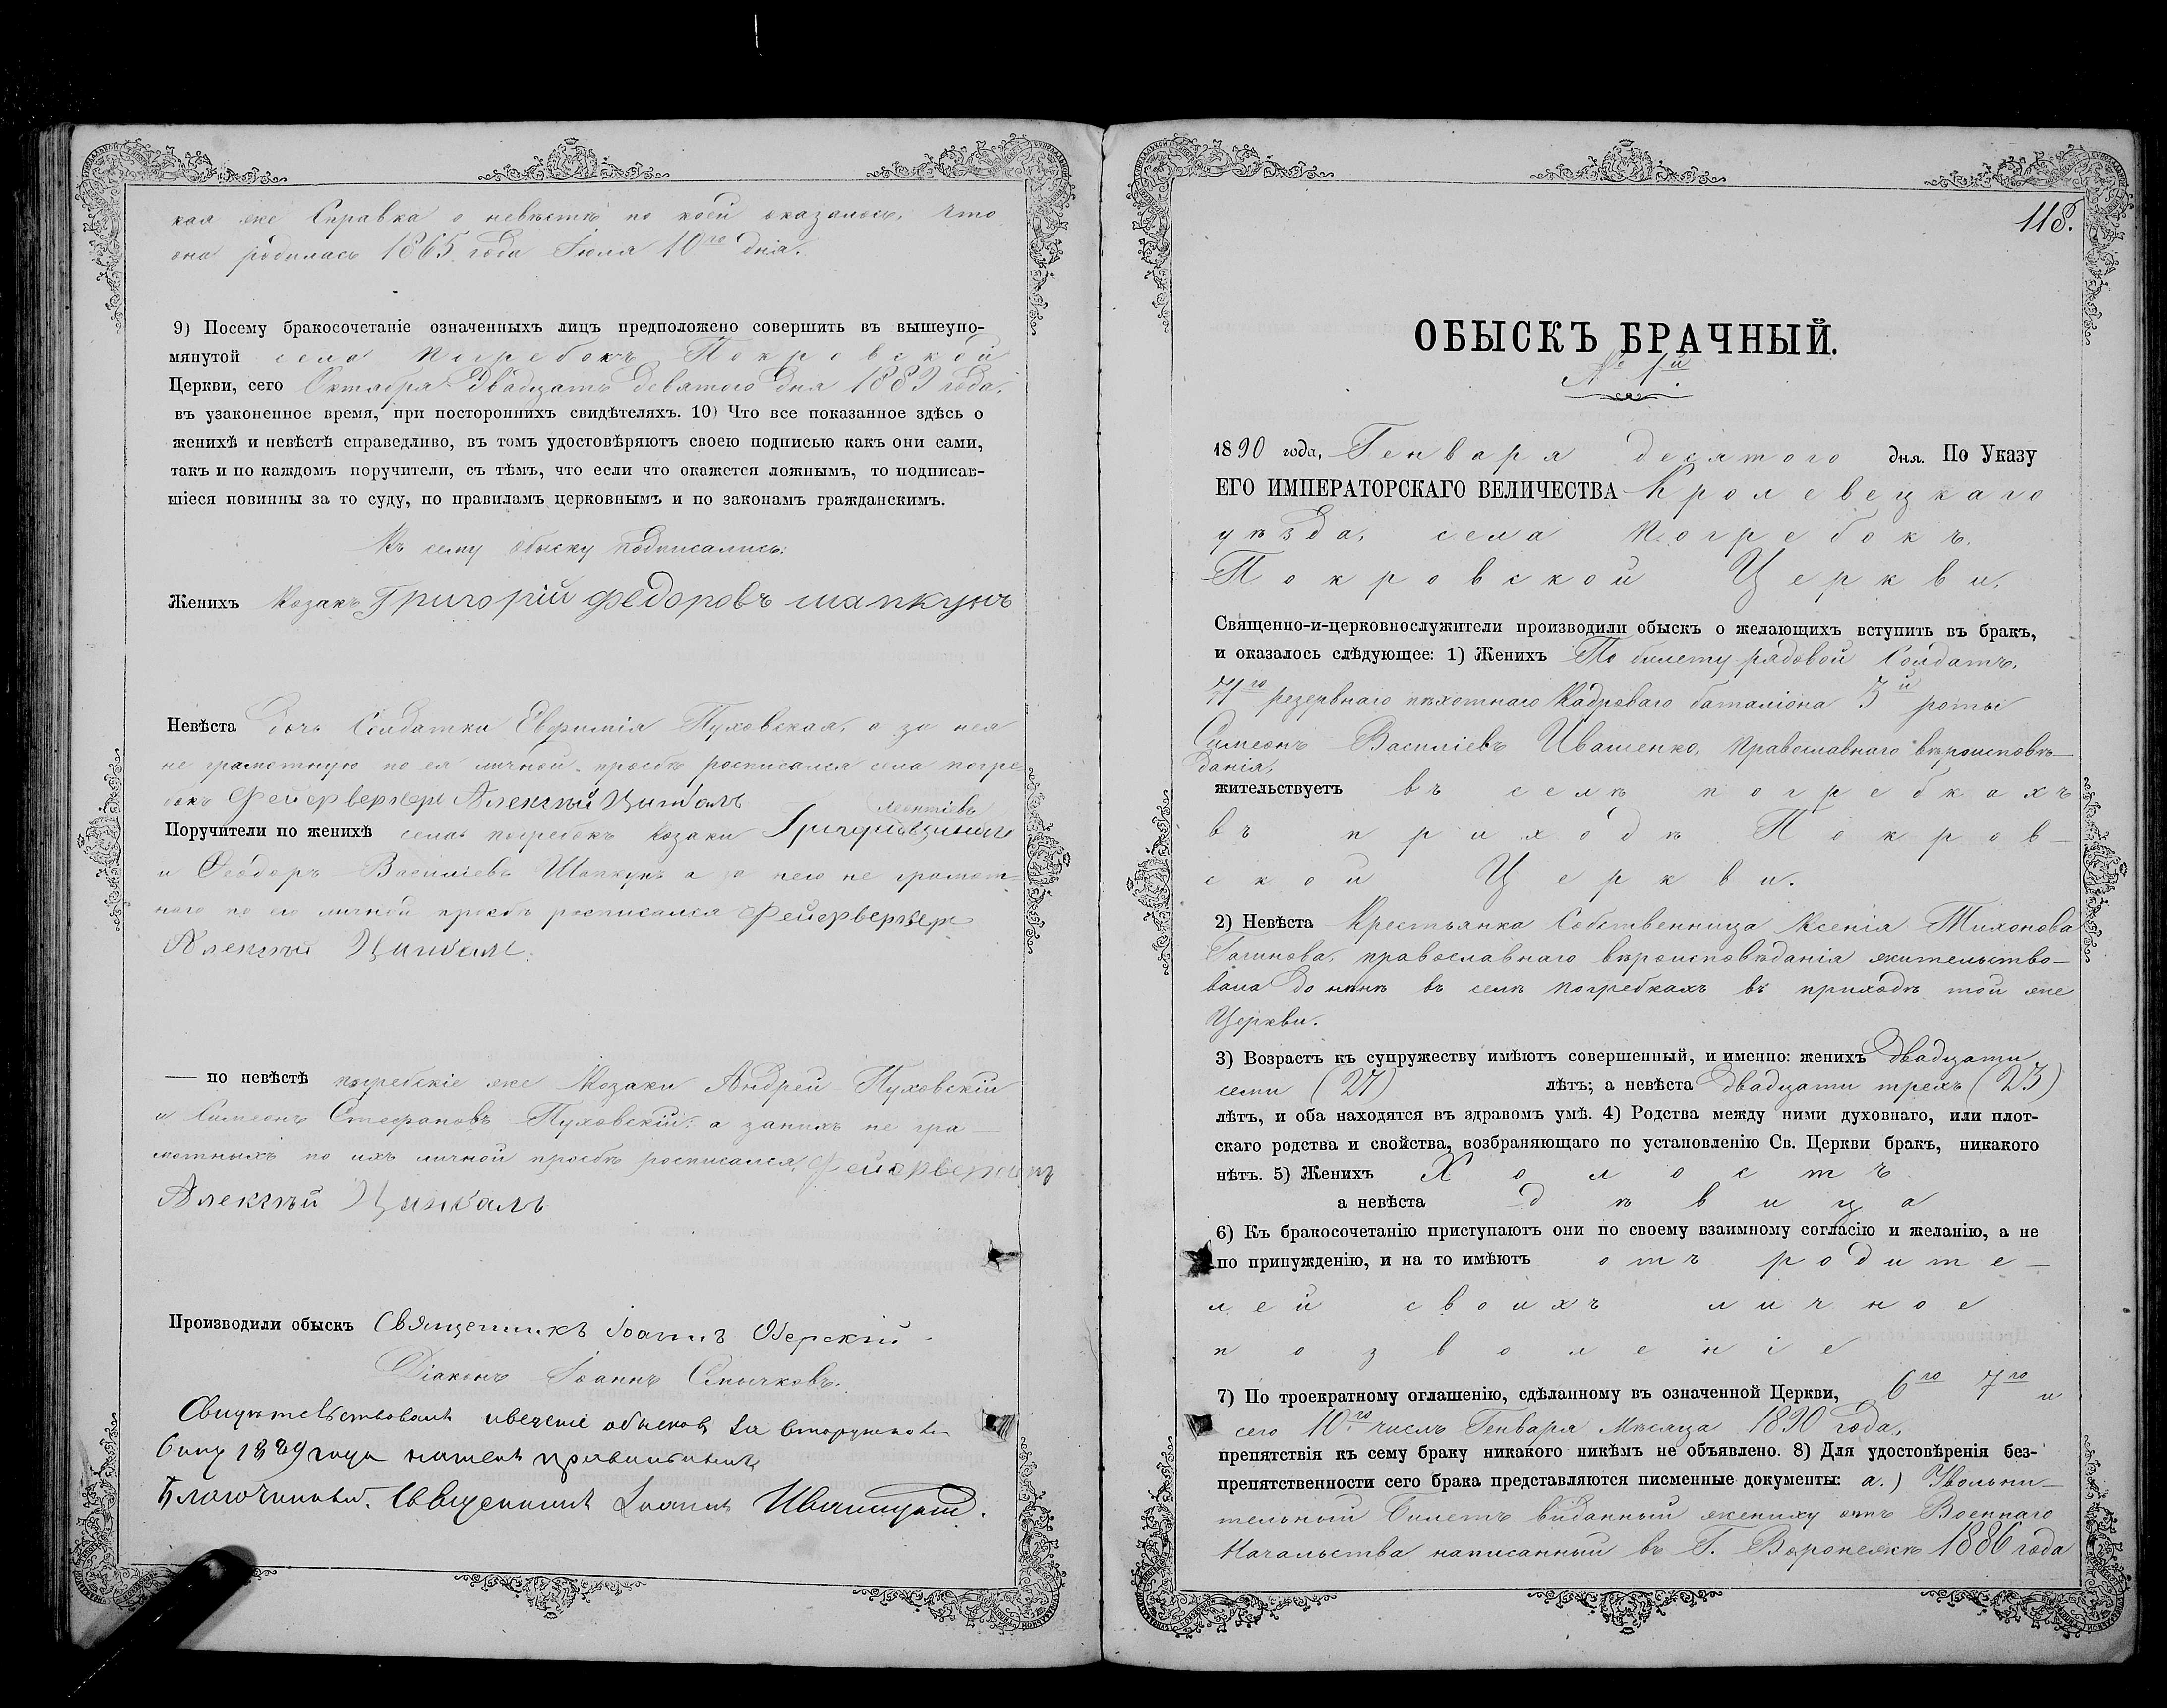 кая же Справка о невѣстѣ по коей оказалось, что
она родилась 1865 года Іюля 10го дня.
9) Посему бракосочетаніе означенныхъ лицъ предположено совершить въ вышеупо-
мянутой села Погребокъ Покровской
Церкви, сего Октября двадцать девятого дня 1889 года,
въ узаконенное время, при постороннихъ свидѣтеляхъ. 10) Что все показанное здѣсь о
женихѣ и невѣстѣ справедливо, въ томъ удостовѣряютъ своею подписью какъ они сами,
такъ и по каждомъ поручители, съ тѣмъ, что если что окажется ложнымъ, то подписав-
шіеся повинны за то суду, по правиламъ церковнымъ и по законамъ гражданскимъ.
Къ сему обыску подписались:
Женихъ Козакъ Григорій федоровъ шапкунъ
Невѣста дочь Солдатки Евфимія Пуховская, а за нея
не грамотную по ея личной просьбѣ росписался села погре-
бокъ Фейерверкеръ Алексѣй Цимбалъ
Леонтіевъ
Поручители по женихѣ села погребокъ Козаки Григорій
и Ѳеодоръ Василіевъ Шапкунъ а за него не грамот-
наго по его личной просьбѣ росписался Фейерверкеръ
Алексѣй Цимбалъ.
— по невѣстѣ погребскіе же Козаки Андрей Пуховскій
и Симеонъ Стефановъ Пуховскій: а за нихъ не гра-
мотныхъ по ихъ личной просьбѣ росписался, Фейерверкеръ
Алексѣй Цимбалъ
Производили обыскъ Священникъ Іоаннъ Озерскій.
Діаконъ Іоаннъ Смычковъ.
Свидѣтельствовалъ обысковъ за вторую
1889 года нашелъ правильнымъ
Благочинный, Священникъ Іоаннъ Иваницкій.
118.
ОБЫСКЪ БРАЧНЫЙ.
№ 1й
1890 года, Генваря десятого дня. По Указу
ЕГО ИМПЕРАТОРСКАГО ВЕЛИЧЕСТВА Кролевецкаго
уѣзда, села Погребокъ,
Покровской Церкви,
Священно-и-церковнослужители производили обыскъ о желающихъ вступить въ бракъ,
и оказалось слѣдующее: 1) Женихъ По билету рядовой Солдатъ,
резервнаго пѣхотнаго Кадроваго баталіона 3й роты
Симеонъ Василіевъ Иващенко, православнаго вѣроисповѣ-
данія,
жительствуетъ въ селѣ погребкахъ
въ приходѣ Покров-
ской Церкви.
2) Невѣста Крестьянка Собственница Ксенія Тихонова
православнаго вѣроисповѣданія жительство-
вала до нынѣ въ селѣ погребкахъ въ приходѣ той же
Церкви.
3) Возрастъ къ супружеству имѣютъ совершенный, и именно: женихъ двадцати
семи (27) лѣтъ; а невѣста двадцати трехъ (23)
лѣтъ, и оба находятся въ здравомъ умѣ. 4) Родства между ними духовнаго, или плот-
скаго родства и свойства, возбраняющаго по установленію Св. Церкви бракъ, никакого
нѣтъ. 5) Женихъ Холостъ
а невѣста дѣвица
6) Къ бракосочетанію приступаютъ они по своему взаимному согласію и желанію, а не
по принужденію, и на то имѣютъ отъ родите-
лей своихъ личное
позволеніе
7) По троекратному оглашенію, сдѣланному въ означенной Церкви, 6го 7го и
сего 10го числъ Генваря Мѣсяца 1890 года,
препятствія къ сему браку никакого никѣмъ не объявлено. 8) Для удостовѣренія без-
препятственности сего брака представляются писменные документы: а.) Увольни-
тельный билетъ виданный жениху отъ Военнаго
Начальства написанный въ Г. Воронежѣ 1886 года